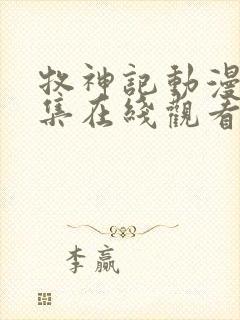 牧神記動漫
集在綫觀看
李贏